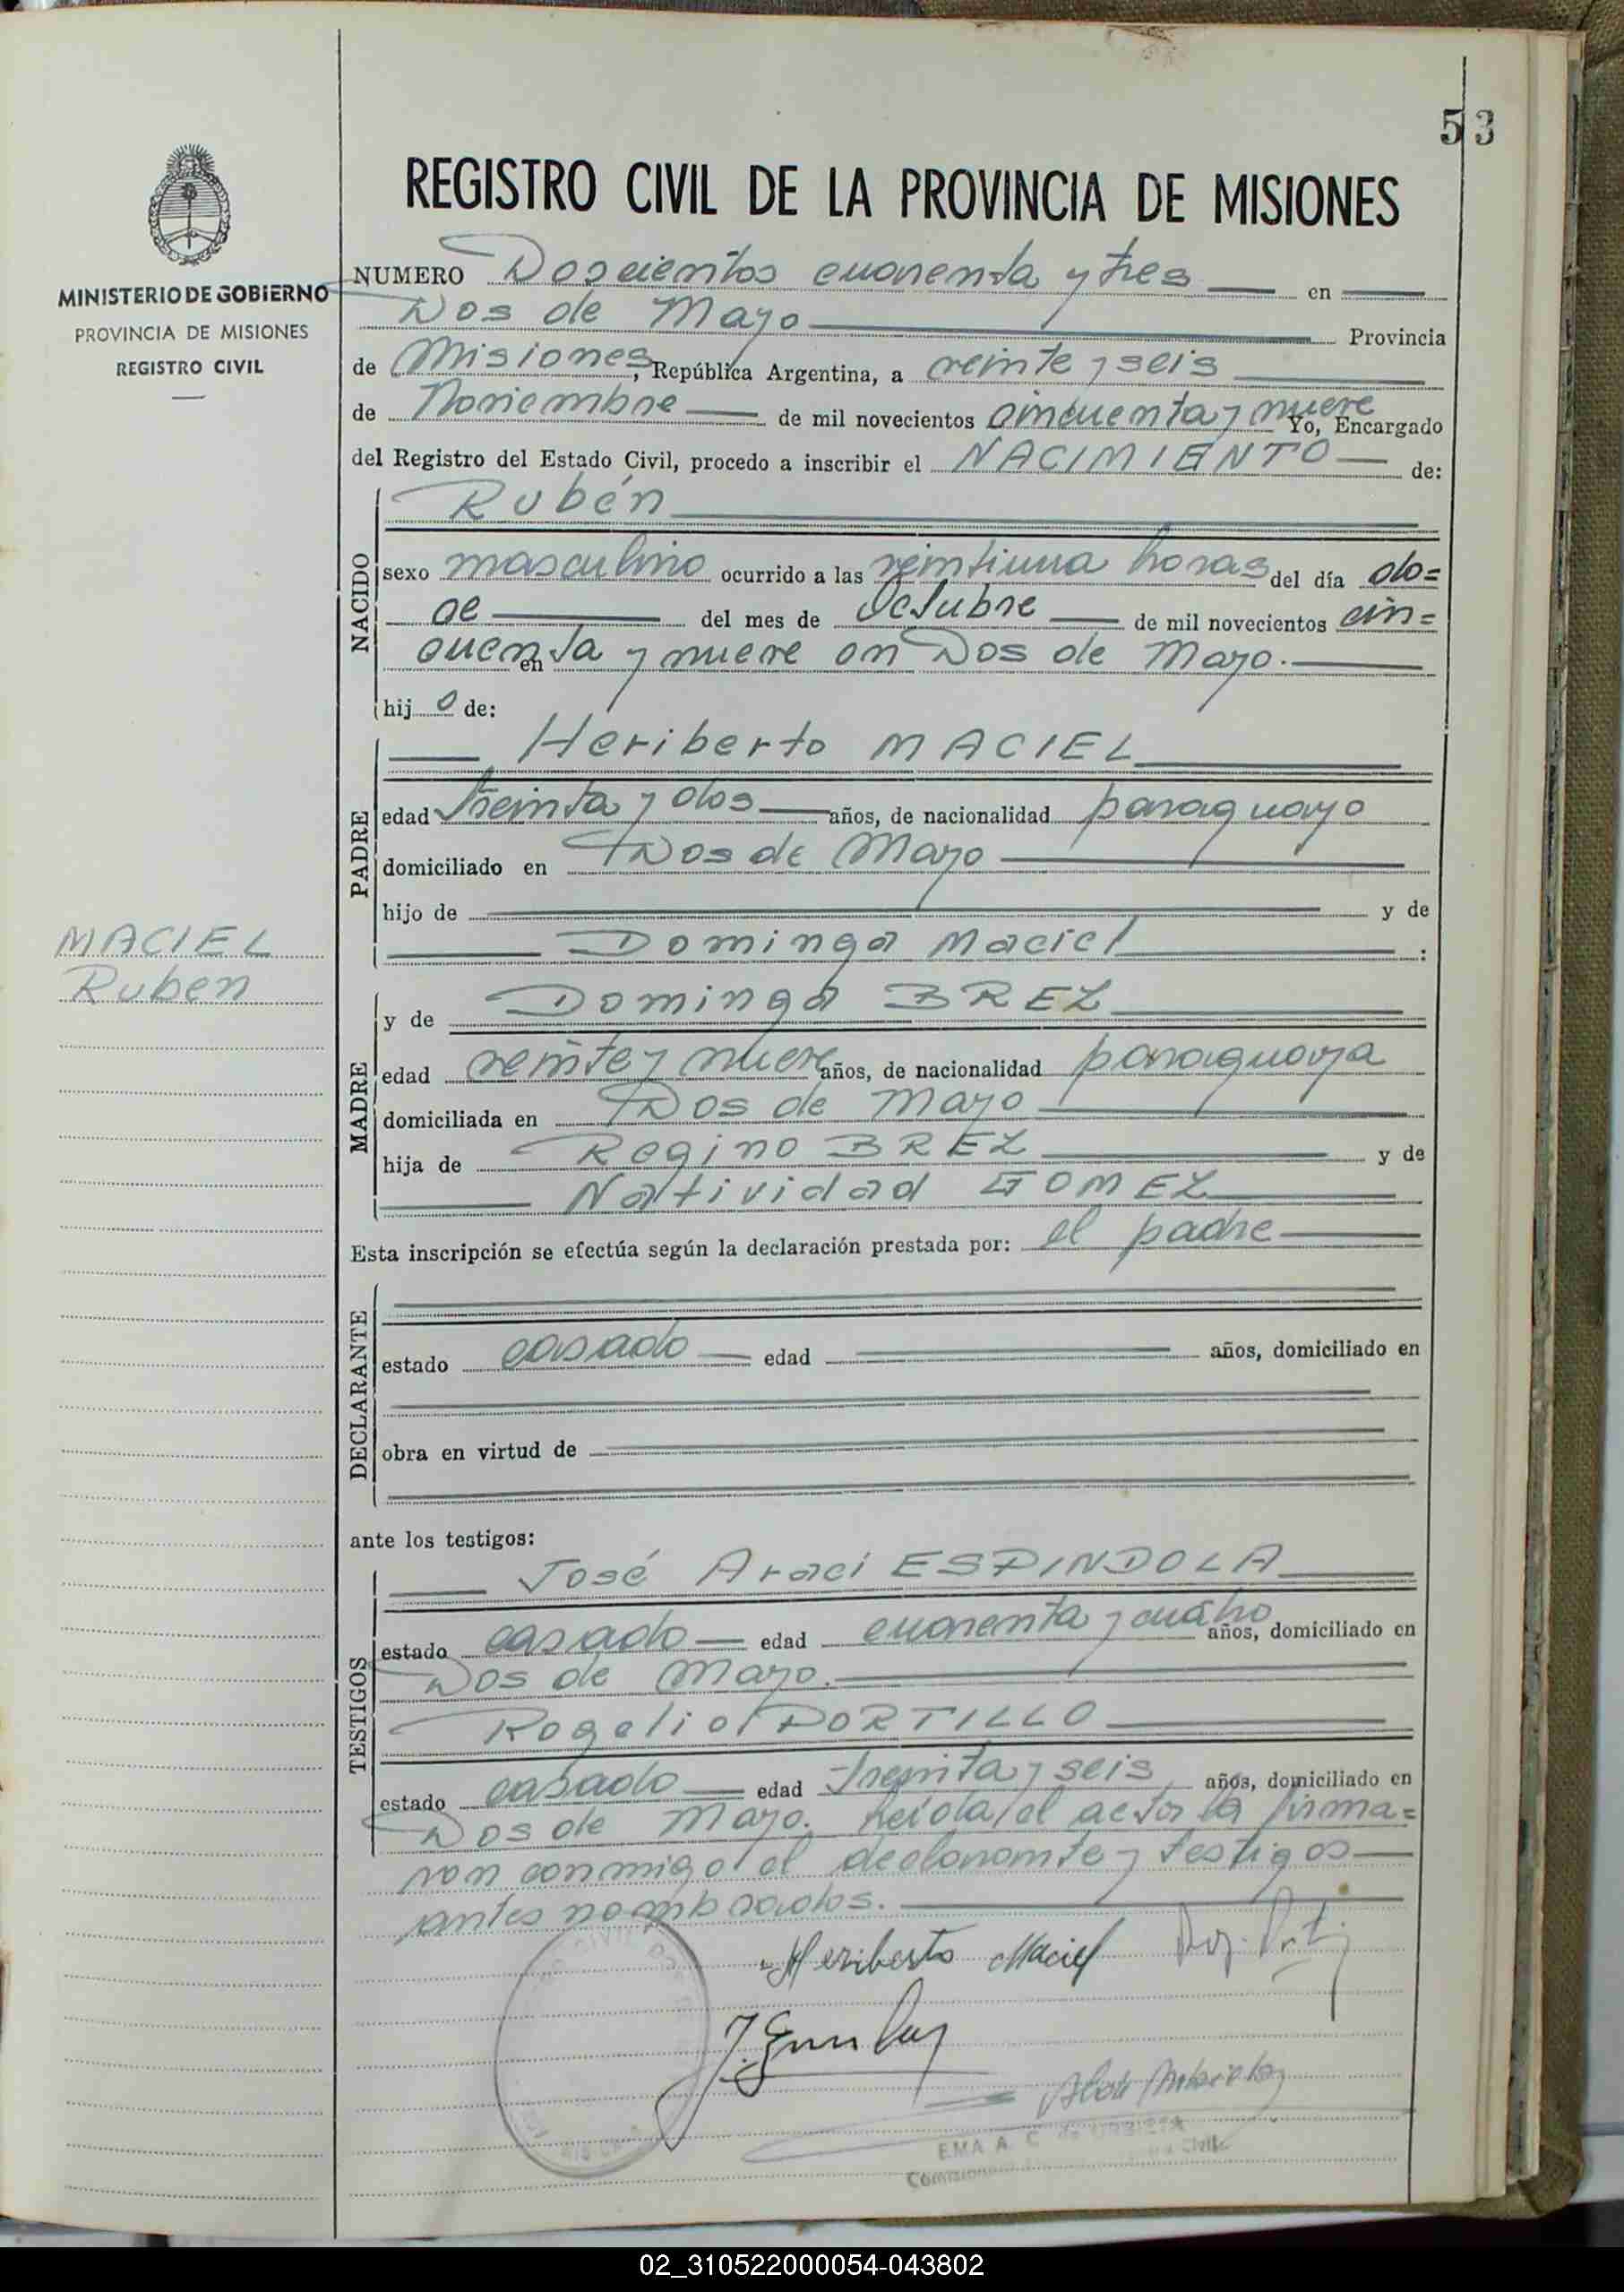 53
REGISTRO CIVIL DE LA PROVINCIA DE MISIONES
MINISTERIO DE GOBIERNO
PROVINCIA DE MISIONES
REGISTRO CIVIL
NUMERO Doscientos cuarenta y tres en
Dos de Mayo Provincia
de Misiones, República Argentina, a veinte y seis
de Noviembre de mil novecientos cincuenta y nueve Yo, Encargado
del Registro del Estado Civil, procedo a inscribir el NACIMIENTO de:
NACIDO
Rubén
sexo masculino ocurrido a las veintiuna horas del día do=
ce del mes de Octubre de mil novecientos cin=
cuenta y nueve en Dos de Mayo.
en
hijo de:
PADRE
Heriberto MACIEL
edad treinta y dos años, de nacionalidad paraguayo
domiciliado en Dos de Mayo
hijo de y de
Dominga Maciel :
MACIEL
Ruben
MADRE
y de Dominga BREZ
edad veinte y nueve años, de nacionalidad paraguaya
domiciliada en Dos de Mayo
hija de Regino BREZ y de
Natividad GOMEZ
Esta inscripción se efectúa según la declaración prestada por: el padre
DECLARANTE
estado casado edad años, domiciliado en
obra en virtud de
ante los testigos:
TESTIGOS
José Araci ESPINDOLA
estado casado edad cuarenta y cuatro años, domiciliado en
Dos de Mayo.
Rogelio PORTILLO
estado casado edad treinta y seis años, domiciliado en
Dos de Mayo. Leída el acta la firma=
ron conmigo el declarante y testigos
antes nombrados.
Heriberto Maciel
EMA A. C. de
Civil
02_310522000054-043802